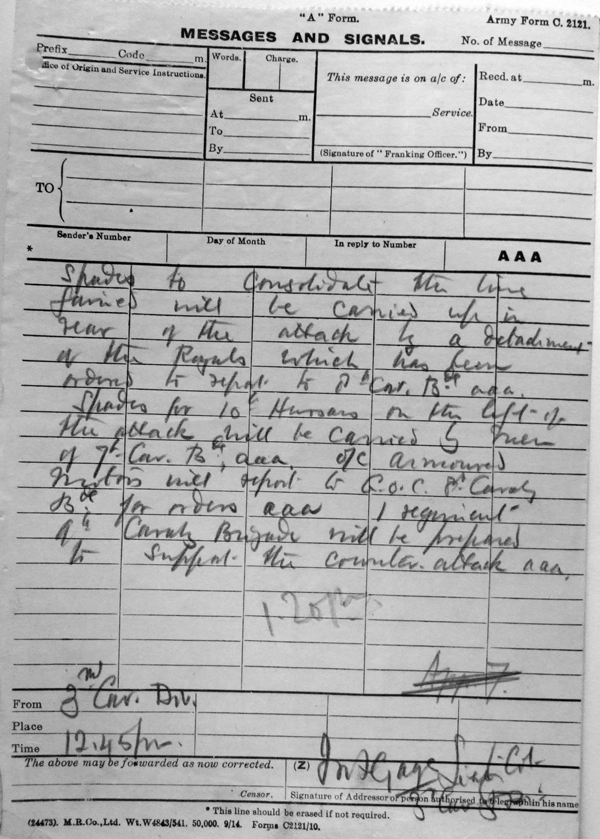 "A" Form.
Army Form C. 2121.
MESSAGES AND SIGNALS.
No. of Message
Prefix Code m.
Office of Origin and Service Instructions.
Words. Charge.
This message is on a/c of:
Recd. at m.
Sent
Date
At m.
Service.
To
From
By
(Signature of "Franking Officer.")
By
TO
Sender's Number Day of Month In reply to Number AAA
*
Spades to consolidate the line
gained will be carried up in
rear of the attack by a detachment
of the Royals which has been
ordered to report to 8th Cav. Bde aaa.
Spades for 10th Hussars on the left of
the attack will be carried by men
of 7th Cav. Bde, aaa. O/C armoured
motors will report to G.O.C. 8th Cavalry
Bde for orders aaa 1 regiment
Cavalry Brigade will be prepared
to support the counter-attack aaa.
1.20pm.
App 7.
From 3rd Cav. Div.
Place
Time 12.45pm.
The above may be forwarded as now corrected. (Z)
Censor. Signature of Addressor or person authorised to telegraph in his name
* This line should be erased if not required.
(24473). M.R.Co., Ltd. Wt.W4843/541. 50,000. 9/14. Forms C2121/10.